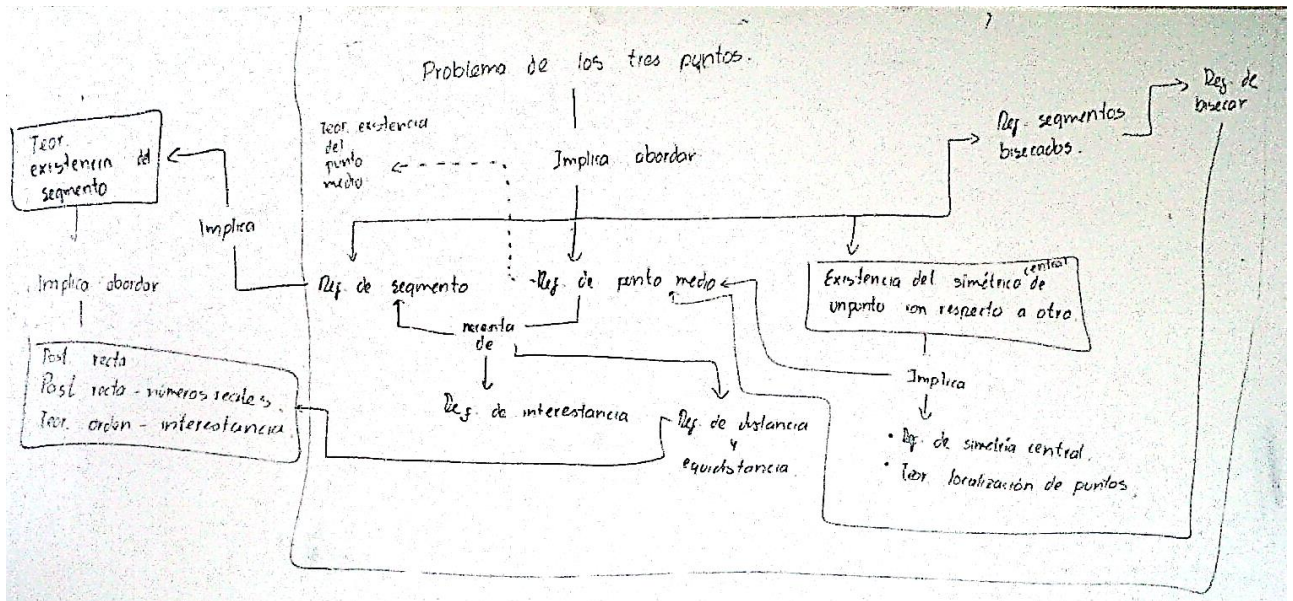 Problema de los tres puntos.
Implica abordar
Teor. existencia
del
punto
medio
Def. segmentos
bisecados.
Def. de
bisecar
Teor.
existencia del
segmento
Implica
Implica abordar
Def. de segmento
Def. de punto medio
Existencia del simétrico central de
un punto con respecto a otro.
necesita
de
Post. recta
Post recta - números reales.
Teor. orden - interestancia.
Def. de interestancia
Def. de distancia
y
equidistancia
Implica
• Def. de simetría central.
• Teor localización de puntos.